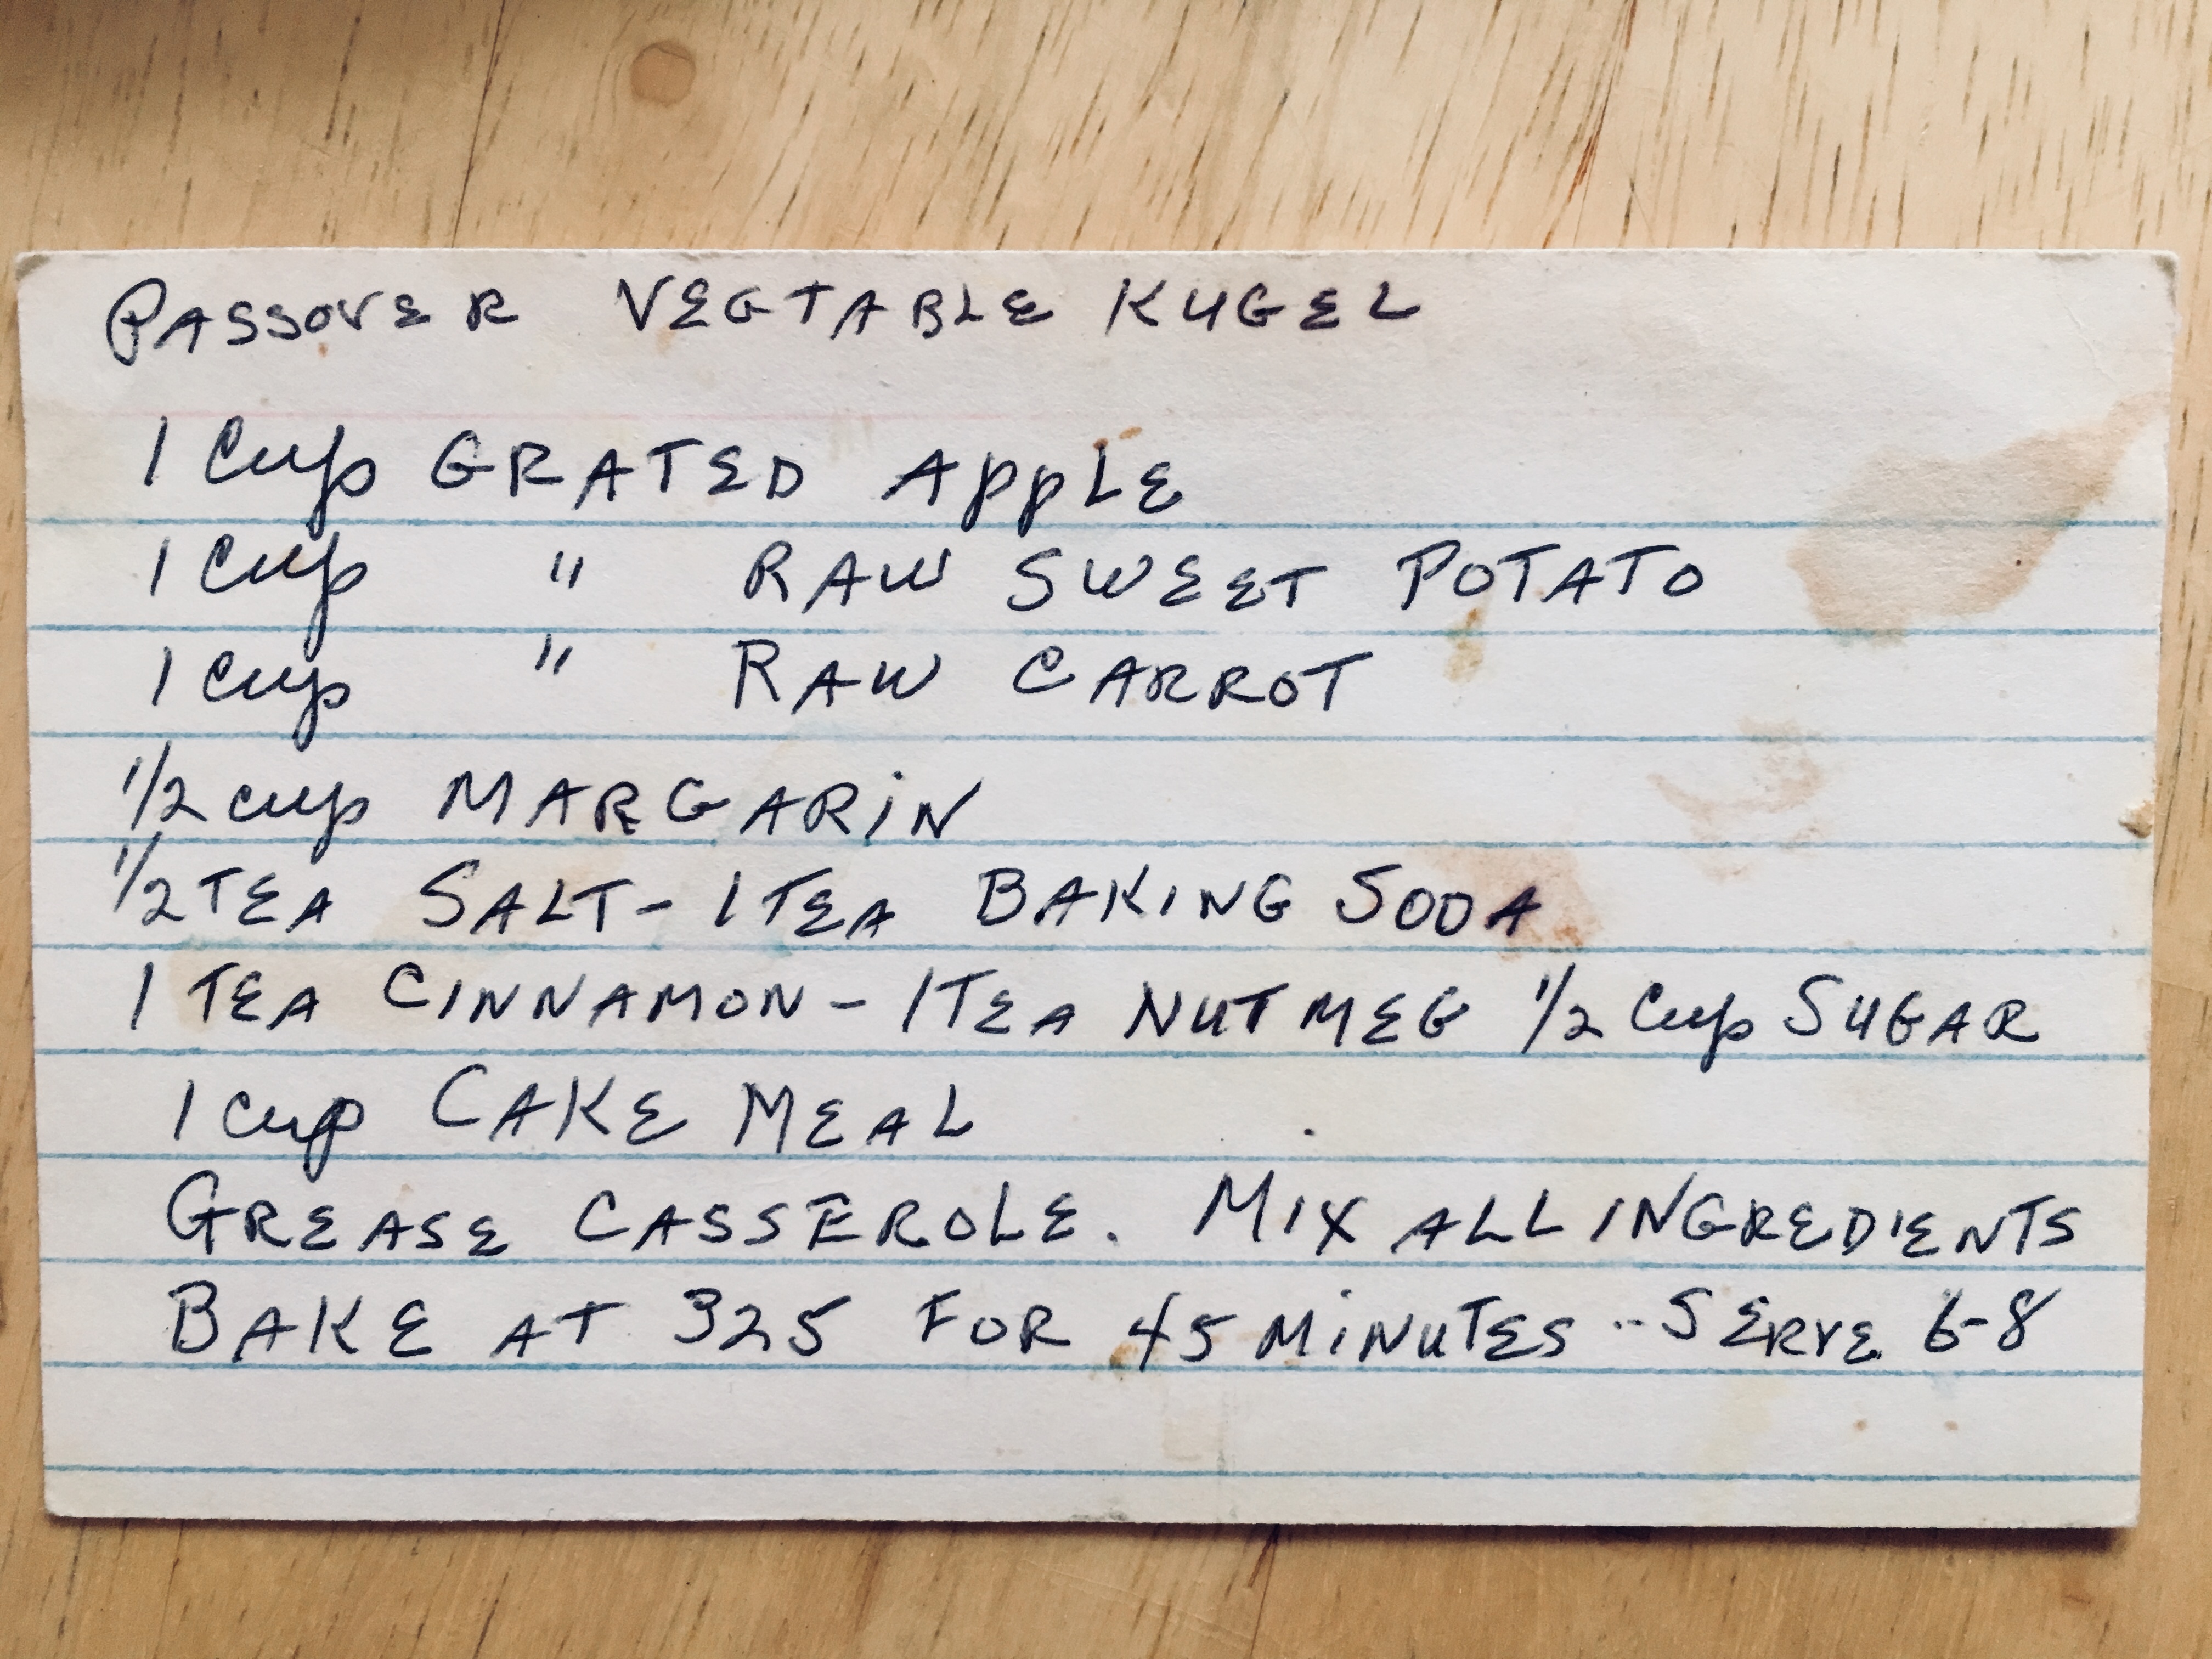 PASSOVER VEGTABLE KUGEL
1 Cup GRATED APPLE
1 Cup " RAW SWEET POTATO
1 Cup " RAW CARROT
1/2 cup MARGARIN
1/2 TEA SALT - 1 TEA BAKING SODA
1 TEA CINNAMON - 1 TEA NUTMEG 1/2 Cup SUGAR
1 cup CAKE MEAL
GREASE CASSEROLE. MIX ALL INGREDIENTS
BAKE AT 325 FOR 45 MINUTES -- SERVE 6-8